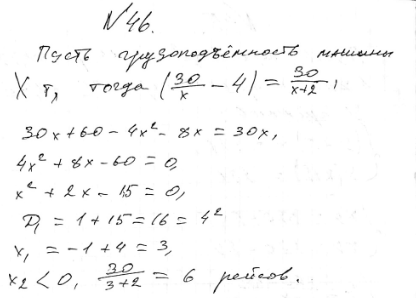 №46.
Пусть грузоподъёмность машины
X т, тогда (30/x − 4) = 30/(x+2),
30x + 60 − 4x² − 8x = 30x,
4x² + 8x − 60 = 0,
x² + 2x − 15 = 0,
D₁ = 1 + 15 = 16 = 4²
x₁ = −1 + 4 = 3,
x₂ < 0, 30/(3+2) = 6 рейсов.